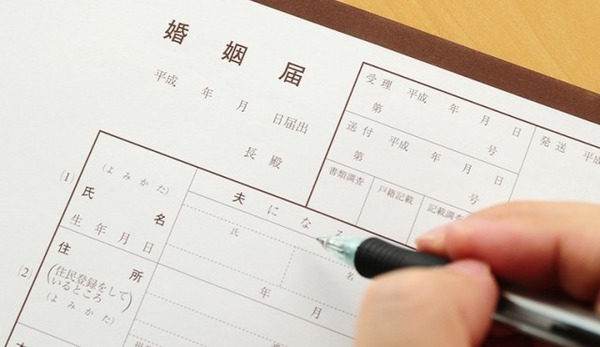 婚姻届
平成 年 月 日届出
長 殿
受理 平成 年 月 日
第 号
発送 平成
送付 平成 年 月 日
第 号
書類調査 戸籍記載 記載調査
(1)
(よみかた)
氏 名
生年月日
夫になる
氏 名
年 月
(2)
住 所
(住民登録をして
いるところ)
(よみかた)